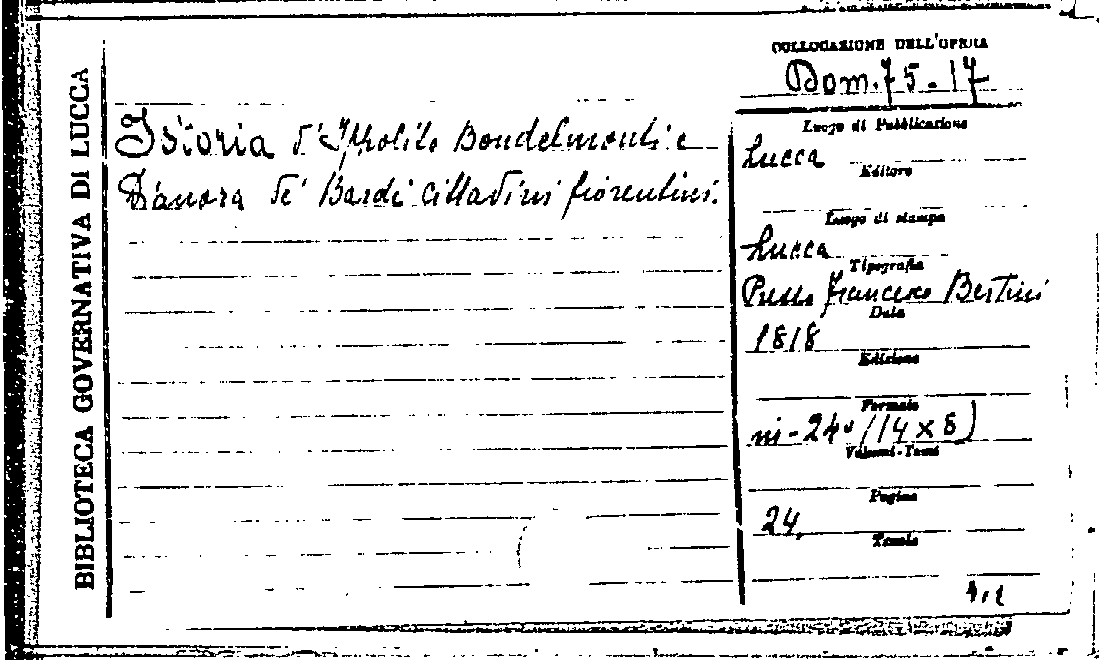 BIBLIOTECA GOVERNATIVA DI LUCCA
COLLOCAZIONE DELL'OPERA
Dom. 75-17
Istoria d'Ippolito Bondelmonti e
Dianora de' Bardi cittadini fiorentini.
Luogo di Pubblicazione
Lucca
Editore
Luogo di stampa
Lucca
Tipografia
Presso Francesco Bertini
Data
1818
Edizione
Formato
in-24° (14 x 8)
Volumi-Tomi
Pagine
24,
Tavole